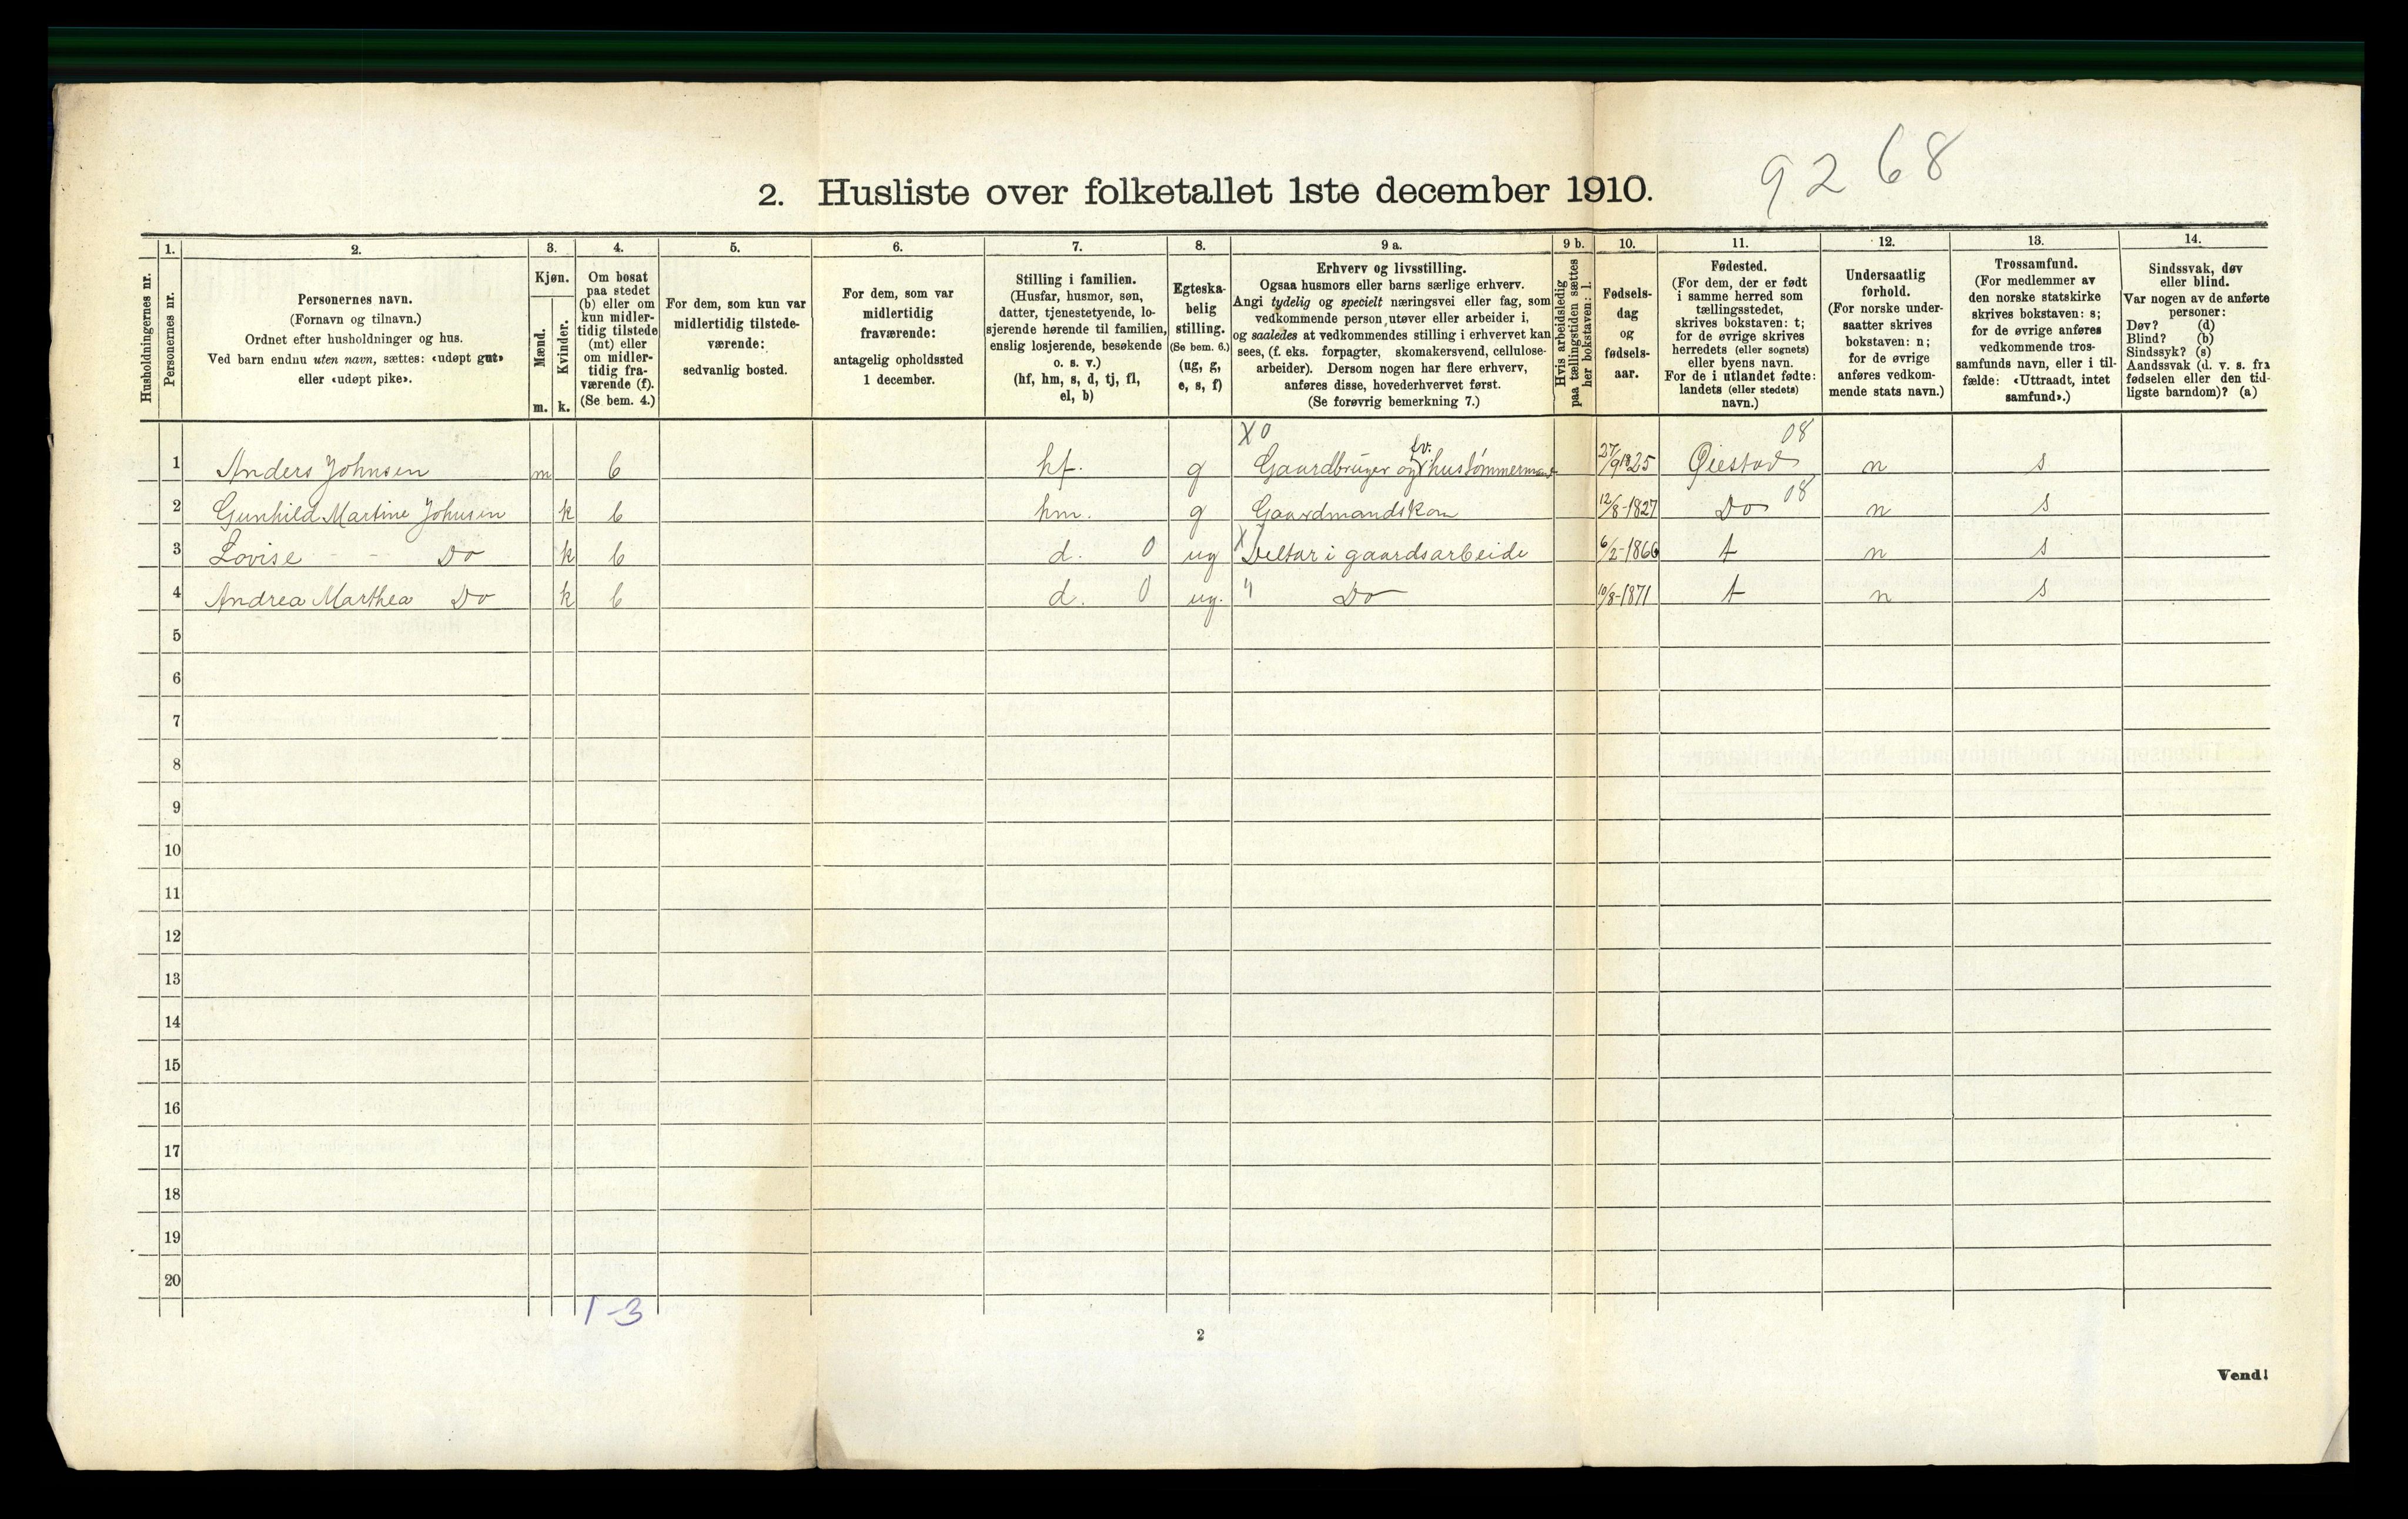 9268
2. Husliste over folketallet 1ste december 1910.
Husholdningernes nr.
1.
Personernes nr.
2.
Personernes navn.
(Fornavn og tilnavn.)
Ordnet efter husholdninger og hus.
Ved barn endnu uten navn, sættes: «udøpt gut»
eller «udøpt pike».
3.
Kjøn.
Mænd.
m.
Kvinder.
k.
4.
Om bosat
paa stedet
(b) eller om
kun midler-
tidig tilstede
(mt) eller
om midler-
tidig fra-
værende (f).
(Se bem. 4.)
5.
For dem, som kun var
midlertidig tilstede-
værende:
sedvanlig bosted.
6.
For dem, som var
midlertidig
fraværende:
antagelig opholdssted
1 december.
7.
Stilling i familien.
(Husfar, husmor, søn,
datter, tjenestetyende, lo-
sjerende hørende til familien,
enslig losjerende, besøkende
o. s. v.)
(hf, hm, s, d, tj, fl,
el, b)
8.
Egteska-
belig
stilling.
(Se bem. 6.)
(ug, g,
e, s, f)
9 a.
Erhverv og livsstilling.
Ogsaa husmors eller barns særlige erhverv.
Angi tydelig og specielt næringsvei eller fag, som
vedkommende person utøver eller arbeider i,
og saaledes at vedkommendes stilling i erhvervet kan
sees, (f. eks. forpagter, skomakersvend, cellulose-
arbeider). Dersom nogen har flere erhverv,
anføres disse, hovederhvervet først.
(Se forøvrig bemerkning 7.)
9 b.
Hvis arbeidsledig
paa tællingstiden sættes
her bokstaven: l.
10.
Fødsels-
dag
og
fødsels-
aar.
11.
Fødested.
(For dem, der er født
i samme herred som
tællingsstedet,
skrives bokstaven: t;
for de øvrige skrives
herredets (eller sognets)
eller byens navn.
For de i utlandet fødte:
landets (eller stedets)
navn.)
12.
Undersaatlig
forhold.
(For norske under-
saatter skrives
bokstaven: n;
for de øvrige
anføres vedkom-
mende stats navn.)
13.
Trossamfund.
(For medlemmer av
den norske statskirke
skrives bokstaven: s;
for de øvrige anføres
vedkommende tros-
samfunds navn, eller i til-
fælde: «Uttraadt, intet
samfund».)
14.
Sindssvak, døv
eller blind.
Var nogen av de anførte
personer:
Døv? (d)
Blind? (b)
Sindssyk? (s)
Aandssvak (d. v. s. fra
fødselen eller den tid-
ligste barndom)? (a)
X 0 08
1 Anders Johnsen m b hf. g Gaardbruger og fv. hustømmermand 27/9 1825 Øiestad n s
2 Gunhild Martine Johnsen k b hm. g Gaardmandskone 12/8-1827 Do 08 n s
3 Lovise - - Do k b d. 0 ug X Deltar i gaardsarbeide 6/2-1866 t n s
4 Andrea Marthea Do k b d. 0 ug. " Do 10/8-1871 t n s
5
6
7
8
9
10
11
12
13
14
15
16
17
18
19
20
1-3
2
Vend!